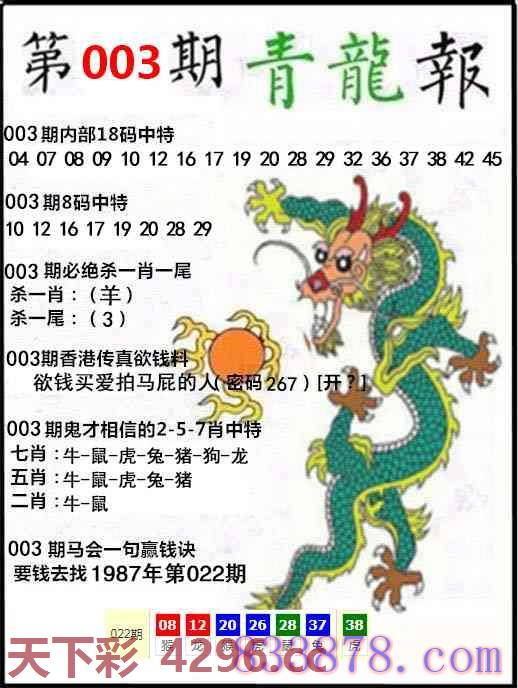 第003期青龍報
003期内部18码中特
04 07 08 09 10 12 16 17 19 20 28 29 32 36 37 38 42 45
003期8码中特
10 12 16 17 19 20 28 29
003 期必绝杀一肖一尾
杀一肖：（羊）
杀一尾：（3）
003期香港传真欲钱料
欲钱买爱拍马屁的人（密码267）[开？]
003期鬼才相信的2-5-7肖中特
七肖：牛-鼠-虎-兔-猪-狗-龙
五肖：牛-鼠-虎-兔-猪
二肖：牛-鼠
003 期马会一句赢钱诀
要钱去找1987年第022期
022期 08 12 20 26 28 37 38
猴 龙 猴 虎 鼠 兔 虎
天下彩 4296.cc
838878.com